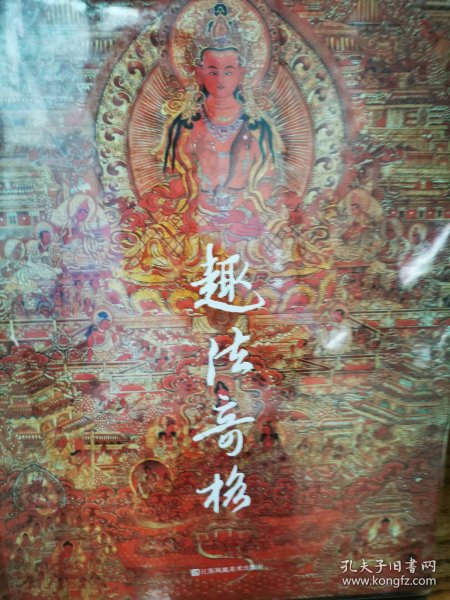 趣法奇格
江苏凤凰美术出版社
孔夫子旧书网
www.kongfz.com